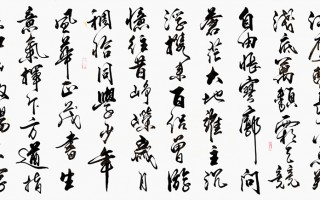 淺底萬類霜天競
自由悵寥廓問
蒼茫大地誰主沉
浮攜來百侶曾遊
憶往昔崢嶸歲月
稠恰同學少年
風華正茂書生
意氣揮斥方遒指
揚文字